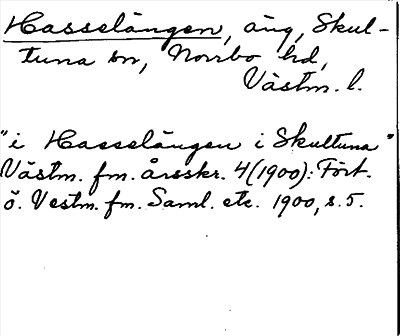 Hasselängen, äng, Skul-
tuna sn, Norrbo hd,
Västm. l.
"i Hasselängen i Skultuna"
Västm. fm. årsskr. 4(1900): Fört.
ö. Vestm. fm. Saml. etc. 1900, s. 5.